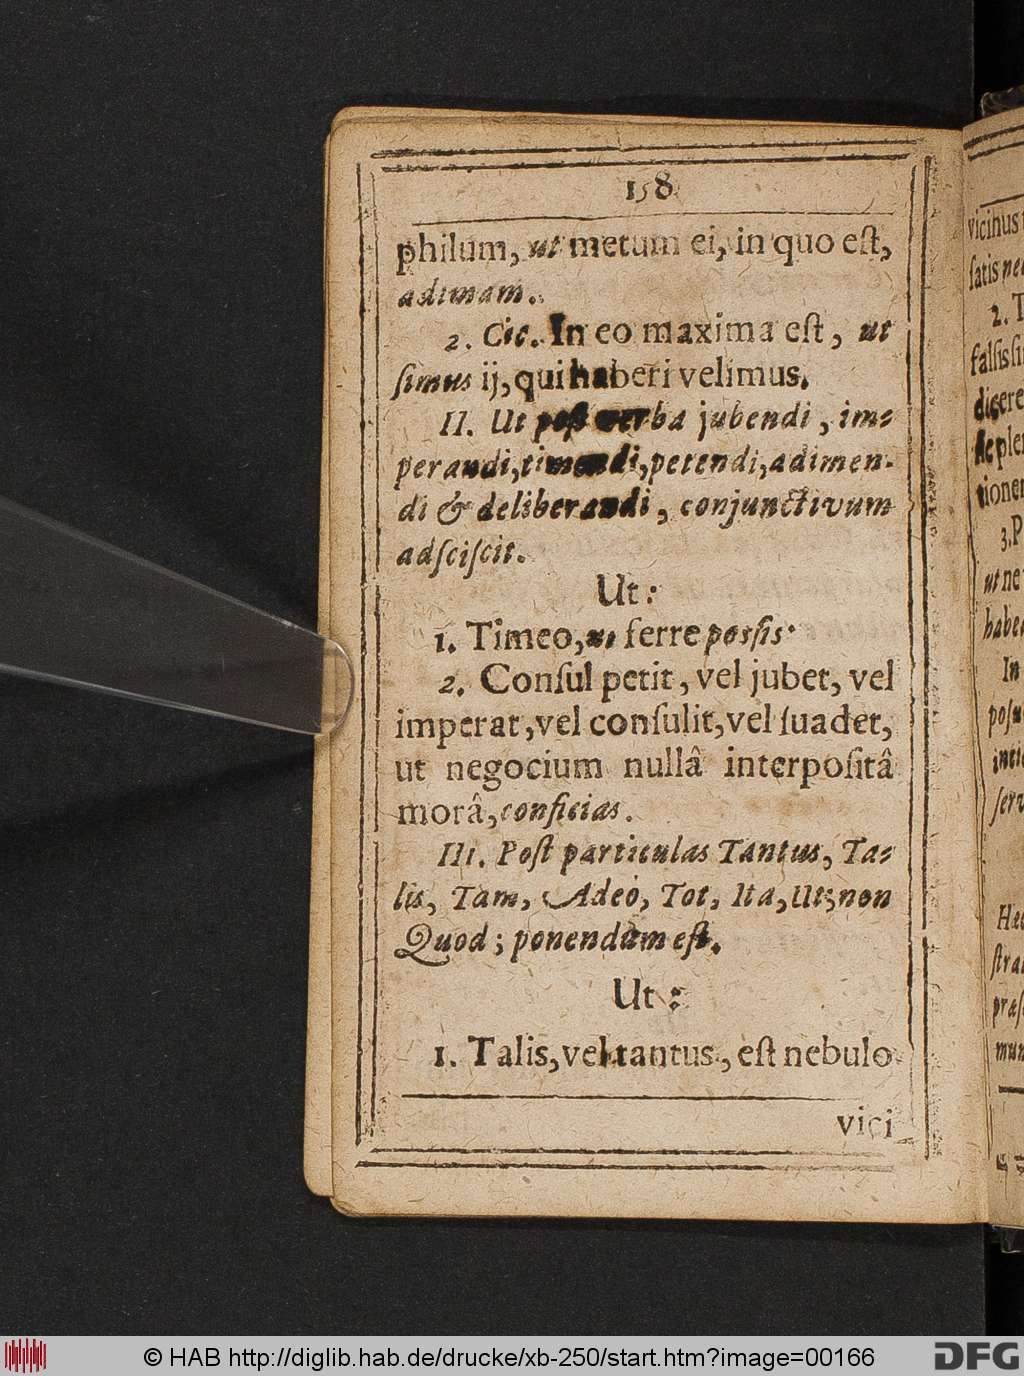 158
philum, ut metum ei, in quo eſt,
adimam.
2. Cic. In eo maxima eſt, ut
ſimus ij, qui haberi velimus.
II. Ut poſt verba jubendi, im-
perandi, timendi, petendi, adimen-
di & deliberandi, conjunctivum
adſciſcit.
Ut:
1. Timeo, ut ferre poſſis.
2. Conſul petit, vel jubet, vel
imperat, vel conſulit, vel ſuadet,
ut negocium nullâ interpoſitâ
morâ, conficias.
III. Poſt particulas Tantus, Ta-
lis, Tam, Adeò, Tot, Ita, Ut; non
Quod; ponendum eſt.
Ut:
1. Talis, vel tantus, eſt nebulo
vici
vicinus
ſatis
2. T
falſis
dicere
3. P
ut ne
In
© HAB http://diglib.hab.de/drucke/xb-250/start.htm?image=00166
DFG